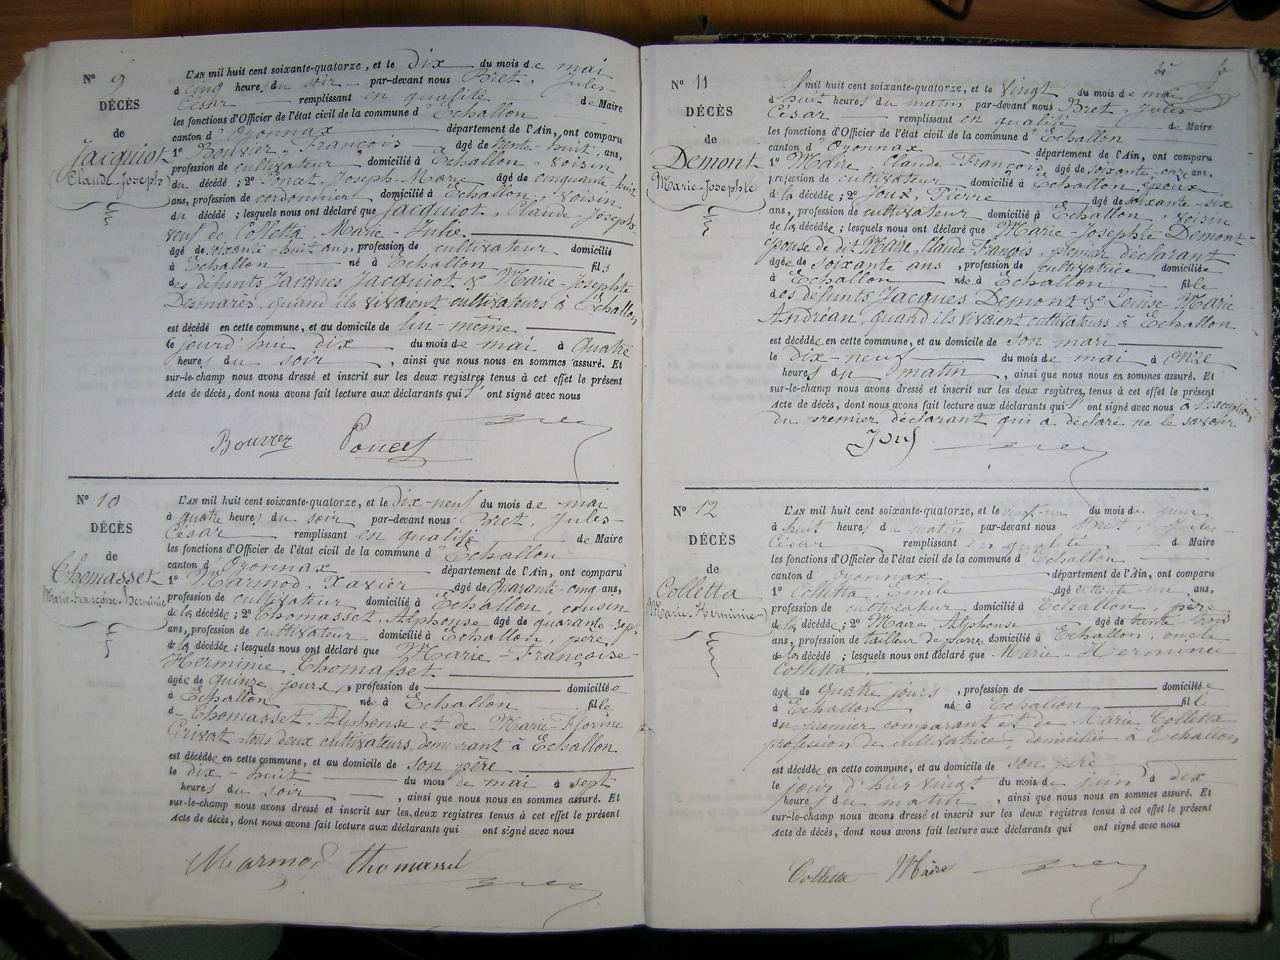 N° 9
DÉCÈS
de
Jacquiot
Claude-Joseph
L'AN mil huit cent soixante-quatorze, et le dix du mois de mai
à cinq heures du soir par-devant nous Bret, Jules-
César remplissant en qualité de Maire
les fonctions d'Officier de l'état civil de la commune d'Echallon
canton d'Oyonnax département de l'Ain, ont comparu
1° Bouvier, François âgé de trente-huit ans,
profession de cultivateur domicilié à Echallon, voisin
du décédé ; 2° Poncet, Joseph-Marie âgé de cinquante-huit
ans, profession de cordonnier domicilié à Echallon, voisin
du décédé ; lesquels nous ont déclaré que Jacquiot, Claude-Joseph
veuf de Colletta Marie-Julie.
âgé de soixante-huit ans, profession de cultivateur domicilié
à Echallon né à Echallon fils
des défunts Jacques Jacquiot & Marie-Josephte
Desmares, quand ils vivaient cultivateurs à Echallon
est décédé en cette commune, et au domicile de lui-même
le jourd'hui dix du mois de mai à quatre
heures du soir, ainsi que nous nous en sommes assuré. Et
sur-le-champ nous avons dressé et inscrit sur les deux registres tenus à cet effet le présent
Acte de décès, dont nous avons fait lecture aux déclarants qui ont signé avec nous
Bouvier Poncet
N° 10
DÉCÈS
de
Thomasset
Marie-Françoise-Herminie
L'AN mil huit cent soixante-quatorze, et le dix-neuf du mois de mai
à quatre heures du soir par-devant nous Bret, Jules-
César remplissant en qualité de Maire
les fonctions d'Officier de l'état civil de la commune d'Echallon
canton d'Oyonnax département de l'Ain, ont comparu
1° Marmod, Xavier âgé de quarante-cinq ans,
profession de cultivateur domicilié à Echallon, cousin
de la décédée ; 2° Thomasset, Alphonse âgé de quarante-sept
ans, profession de cultivateur domicilié à Echallon, père
de la décédée ; lesquels nous ont déclaré que Marie-Françoise-
Herminie Thomasset.
âgée de quinze jours, profession de domiciliée
à Echallon née à Echallon fille
d Thomasset, Alphonse et de Marie-Florine
Privat tous deux cultivateurs demeurant à Echallon
est décédée en cette commune, et au domicile de son père
le dix-huit du mois de mai à sept
heures du soir, ainsi que nous nous en sommes assuré. Et
sur-le-champ nous avons dressé et inscrit sur les deux registres tenus à cet effet le présent
Acte de décès, dont nous avons fait lecture aux déclarants qui ont signé avec nous
Marmod Thomasset
N° 11
DÉCÈS
de
Demont
Marie-Josephte
L'AN mil huit cent soixante-quatorze, et le vingt du mois de mai
à huit heures du matin par-devant nous Bret, Jules
César remplissant en qualité de Maire
les fonctions d'Officier de l'état civil de la commune d'Echallon
canton d'Oyonnax département de l'Ain, ont comparu
1° Maire, Claude François âgé de soixante-onze ans,
profession de cultivateur domicilié à Echallon, époux
de la décédée ; 2° Joux, Pierre âgé de soixante-six
ans, profession de cultivateur domicilié à Echallon, voisin
de la décédée ; lesquels nous ont déclaré que Marie-Josephte Demont
épouse de dit Maire, Claude François, premier déclarant
âgée de soixante ans, profession de cultivatrice domiciliée
à Echallon née à Echallon fille
des défunts Jacques Demont & Louise-Marie
Andréan, quand ils vivaient cultivateurs à Echallon
est décédée en cette commune, et au domicile de son mari
le dix-neuf du mois de mai à onze
heures du matin, ainsi que nous nous en sommes assuré. Et
sur-le-champ nous avons dressé et inscrit sur les deux registres tenus à cet effet le présent
Acte de décès, dont nous avons fait lecture aux déclarants qui ont signé avec nous à l'exception
du premier déclarant qui a déclaré ne le savoir
Joux
N° 12
DÉCÈS
de
Colletta
Marie-Herminie
L'AN mil huit cent soixante-quatorze, et le vingt-un du mois de juin
à huit heures du matin par-devant nous Bret, Jules
César remplissant en qualité d Maire
les fonctions d'Officier de l'état civil de la commune d'Echallon
canton d'Oyonnax département de l'Ain, ont comparu
1° Colletta Emile âgé de trente un ans,
profession de cultivateur domicilié à Echallon, père
de la décédée ; 2° Maire Alphonse âgé de trente trois
ans, profession de tailleur de pierre domicilié à Echallon, oncle
de la décédé ; lesquels nous ont déclaré que Marie-Herminie
Colletta
âgé de quatre jours, profession de domiciliée
à Echallon né à Echallon fille
du premier comparant et de Marie Colletta
profession de cultivatrice, domiciliée à Echallon
est décédée en cette commune, et au domicile de son père
le jour d'hier vingt du mois de juin à dix
heures du matin, ainsi que nous nous en sommes assuré. Et
sur-le-champ nous avons dressé et inscrit sur les deux registres tenus à cet effet le présent
Acte de décès, dont nous avons fait lecture aux déclarants qui ont signé avec nous
Colletta Maire